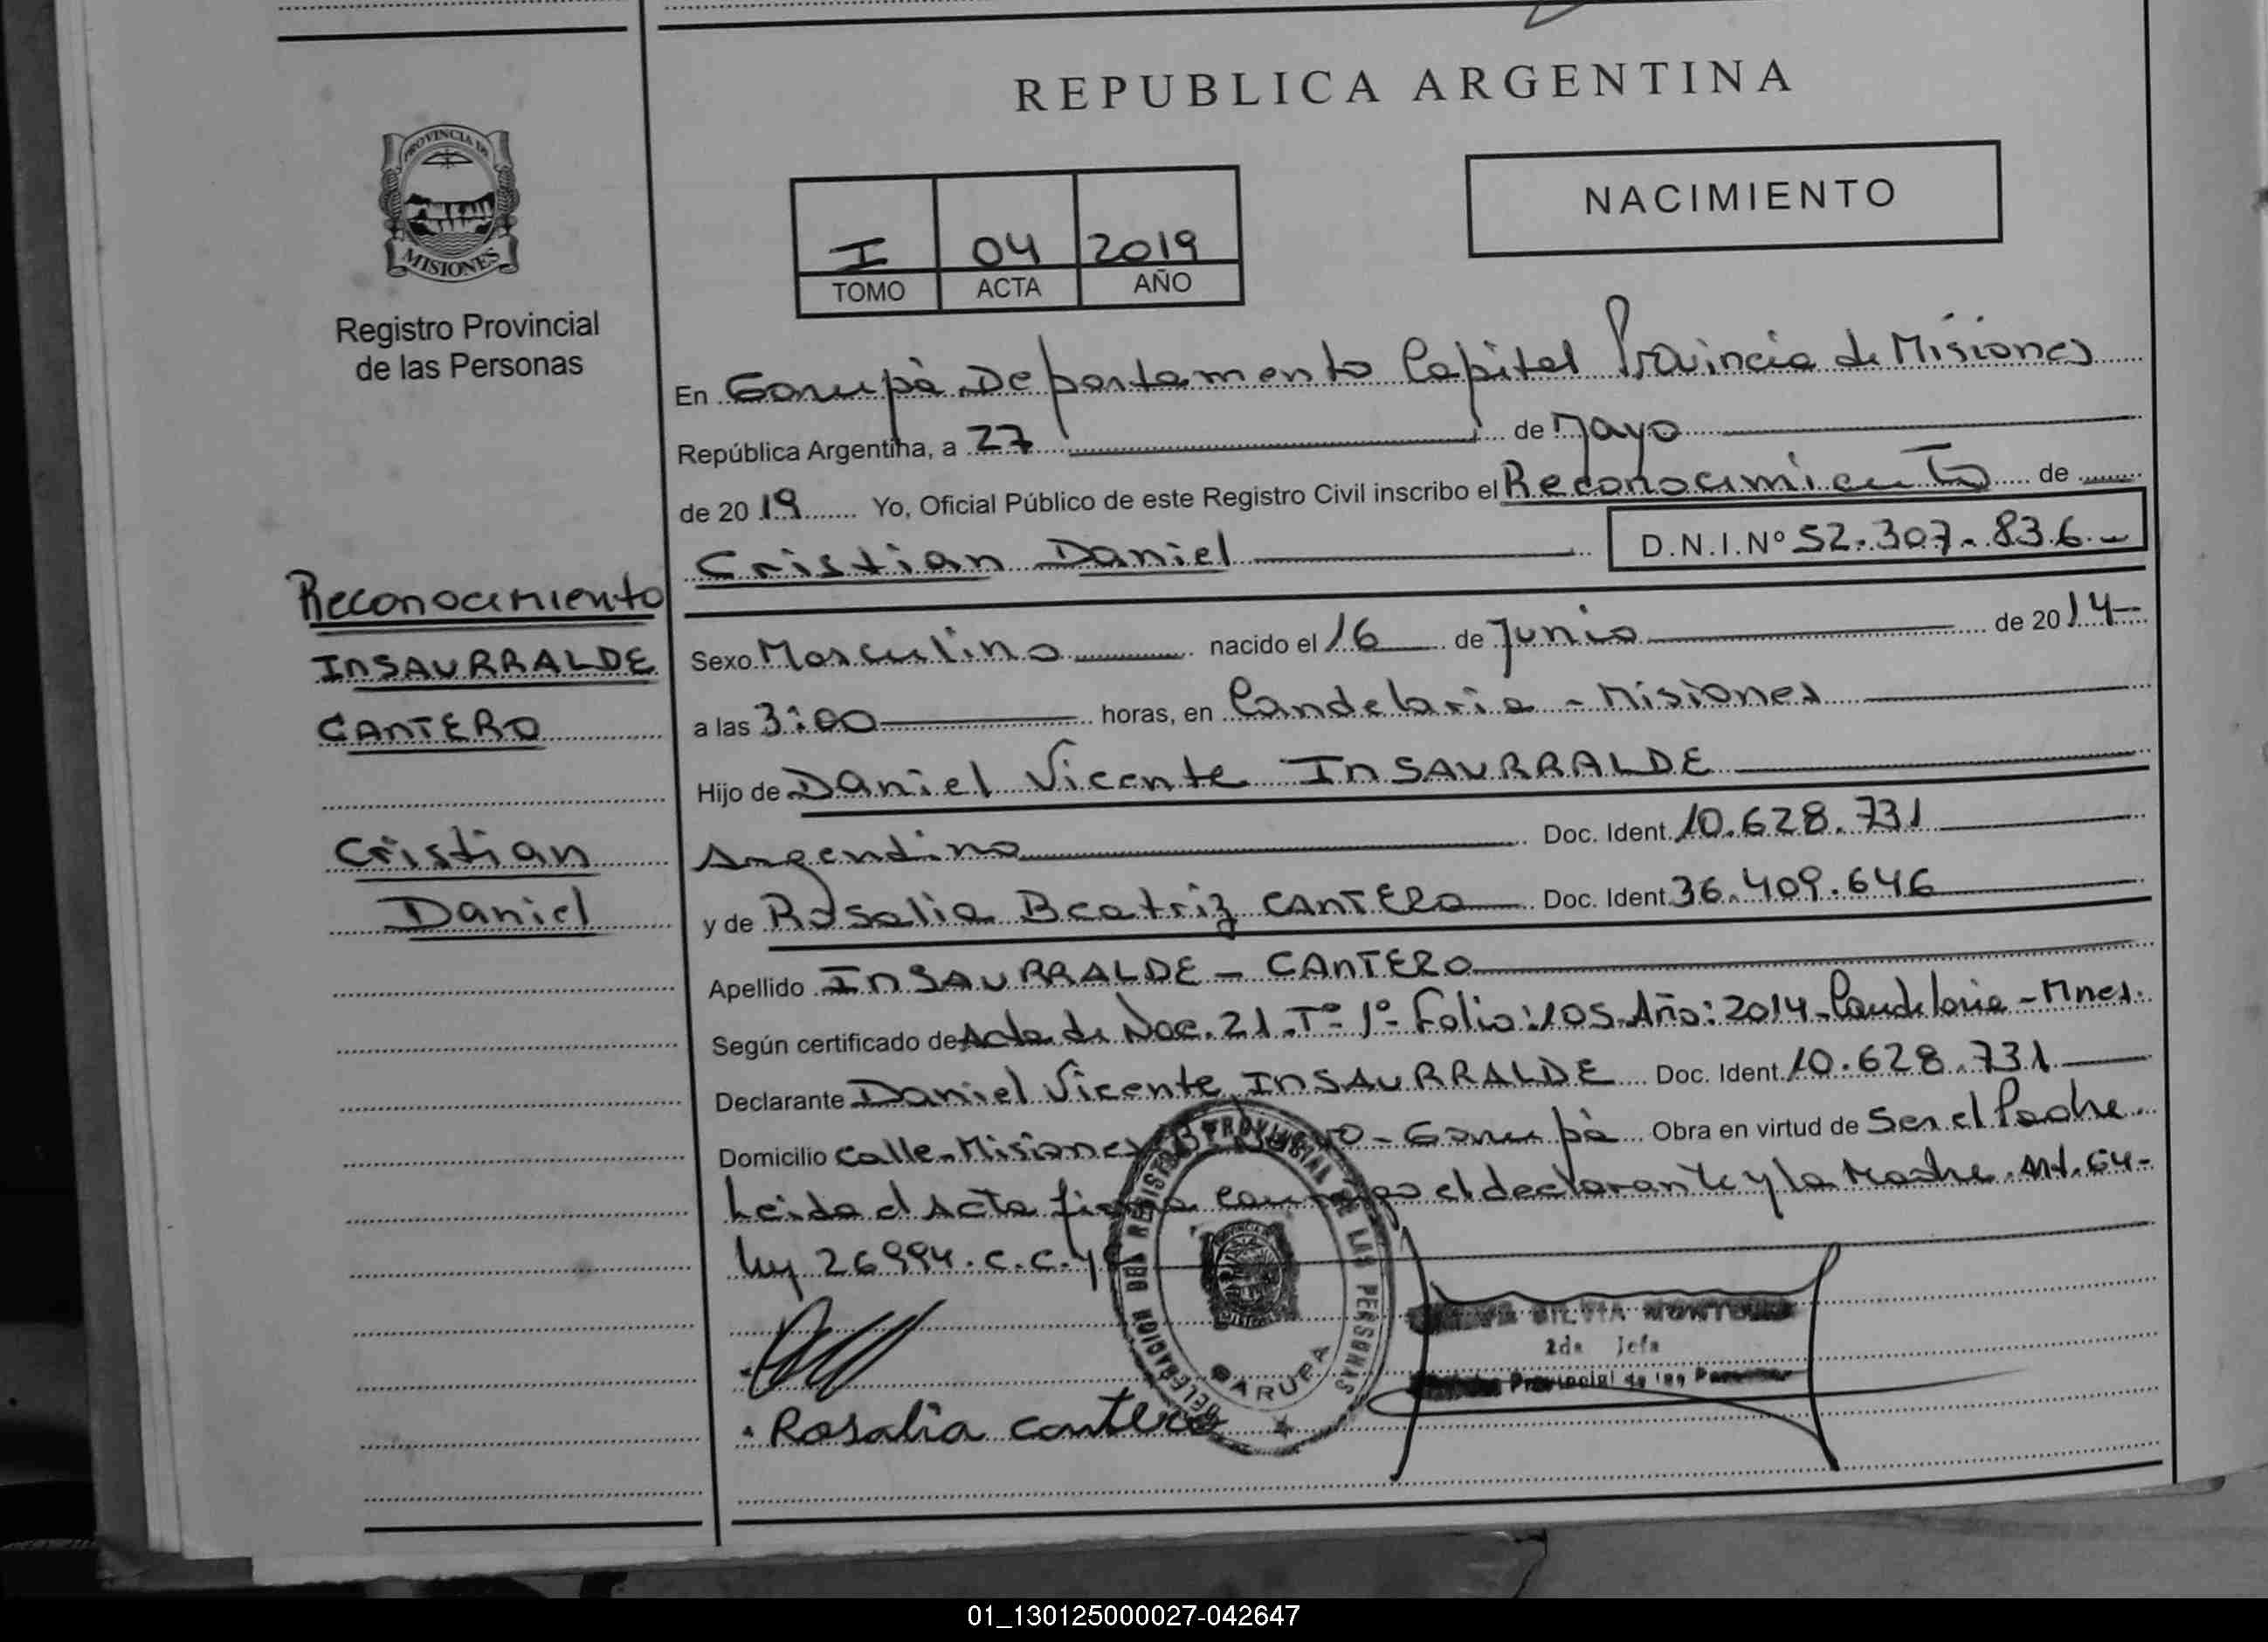 REPUBLICA ARGENTINA
NACIMIENTO
I 04 2019
TOMO ACTA AÑO
PROVINCIA DE
MISIONES
Registro Provincial
de las Personas
Reconocimiento
INSAURRALDE
CANTERO
Cristian
Daniel
En Garupà Departamento Capital Provincia de Misiones
República Argentina, a 27 de Mayo
de 2019 Yo, Oficial Público de este Registro Civil inscribo el Reconocimiento de
Cristian Daniel D.N.I.Nº 52.307.836.-
Sexo Masculino nacido el 16 de Junio de 2014
a las 3:00 horas, en Candelaria - Misiones
Hijo de Daniel Vicente INSAURRALDE
Argentino Doc. Ident. 10.628.731
y de Rosalia Beatriz CANTERO Doc. Ident. 36.409.646
Apellido INSAURRALDE - CANTERO
Según certificado de Acta de Nac. 21 Tº 1º Folio: 105 Año: 2014 - Candelaria - Mnes.
Declarante Daniel Vicente INSAURRALDE Doc. Ident. 10.628.731
Domicilio Calle Misiones - Garupà Obra en virtud de Ser el Padre.
Leida el Acta firma el declarante y la Madre. Art. 64-
Ley 26994. C.C.y
DELEGACION DEL REGISTRO PROVINCIAL DE LAS PERSONAS
GARUPA
SILVIA
2da Jefa
Provincial de las Personas
Rosalia cantero
01_130125000027-042647